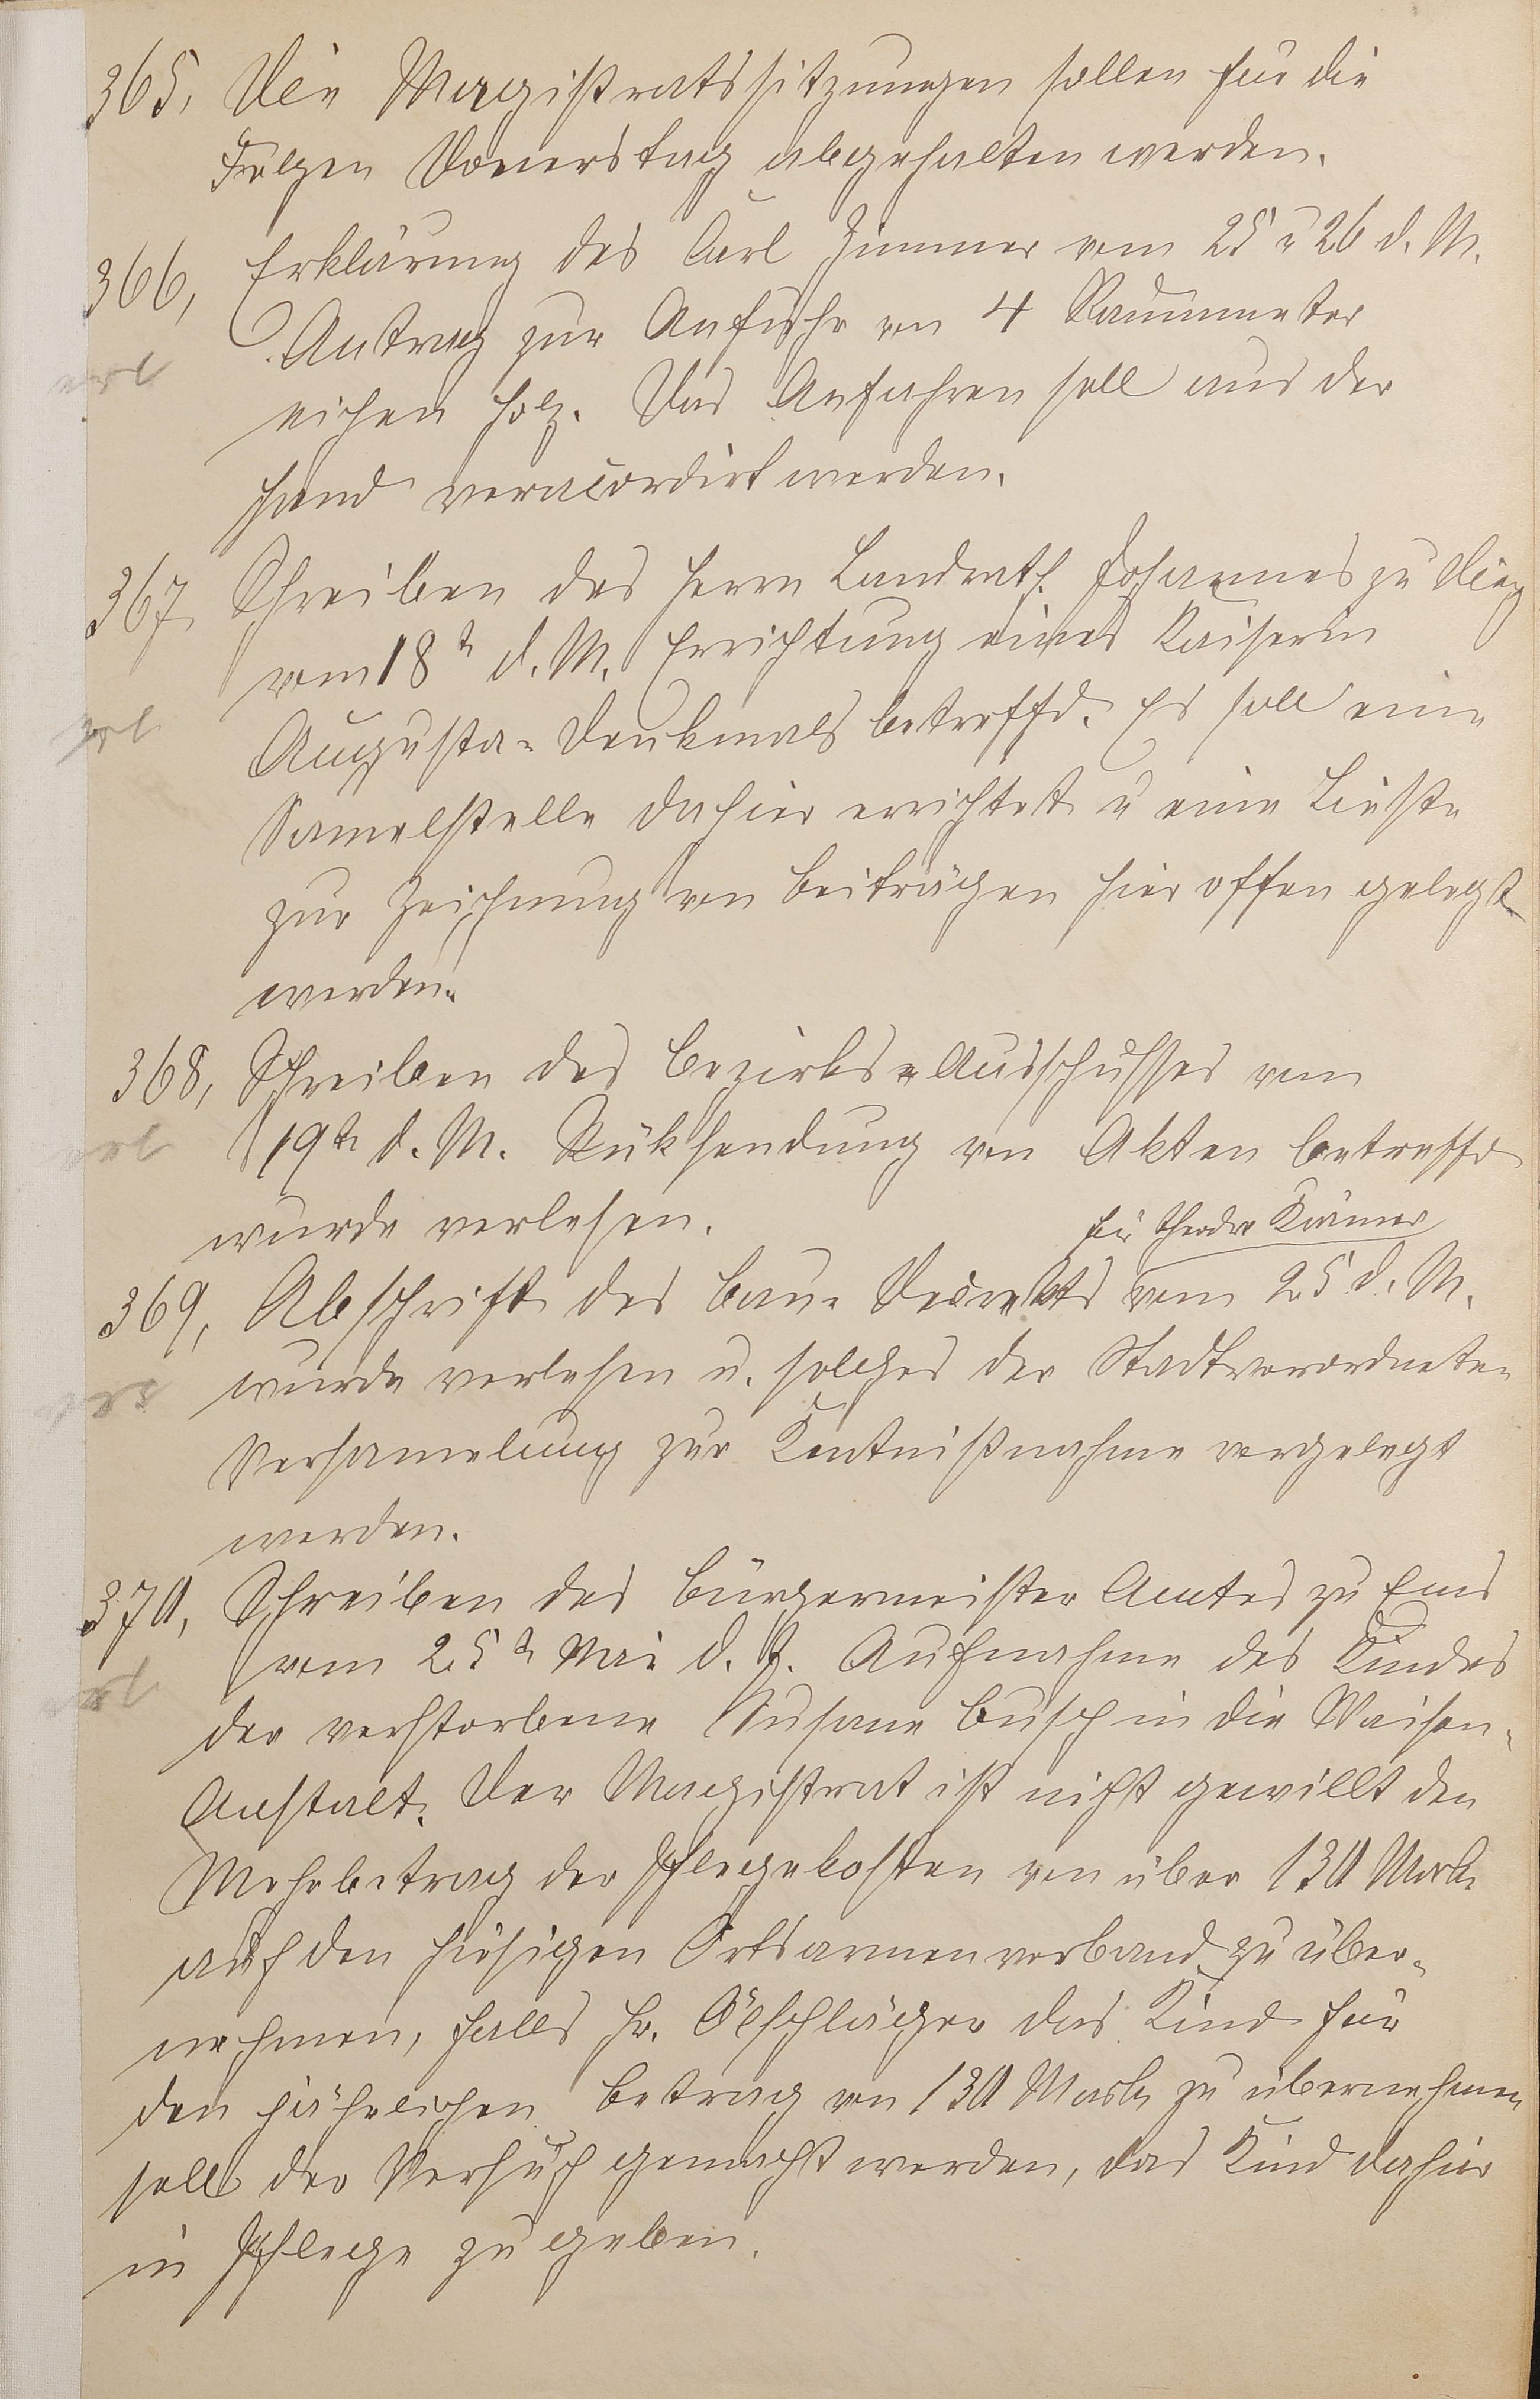 365, Die Magistratssitzungen sollen für die
Folgen Donerstag abgehalten werden.
366, Erklärung des Carl Zimmer vom 25 u 26 d. M.
Antrag zur Anfuhr von 4 Raummeter
erl
eichen Holz. Das Anfahren soll aus der
Hand veracordirt werden.
367 Schreiben des Herrn Landrath Johannes zu Diez
vom 18t d. M. Errichtung eines Kaiserin
erl
Augusta-Denkmals betreffd. Es soll eine
Samelstelle dahier errichtet u eine Liste
zur Zeichnung von Beiträgen hier offen gelegt
werden.
368, Schreiben des Bezirks-Ausschusses vom
erl
19te d. M. Rüksendung von Akten betreffd
wurde verlesen.
für Theodor Krämer
369, Abschrift des Bau-Decrekts vom 25 d. M.
erl
wurde verlesen u. solches der Stadtverordneten
Versamelung zur Kentnißnahme vorgelegt
werden.
370, Schreiben des Bürgermeister Amtes zu Ems
erl
vom 25t Mai d. J. Aufnahme des Kindes
der verstorbene Susane Busch in die Waisen-
Anstalt. Der Magistrat ist nicht gewillt den
Mehrbetrag der Pflegekosten von über 130 Mark
auf den hiesigen Ortsarmenverband zu über-
nehmen, falls Hr. Ölschläger das Kind für
den jährlichen Betrag von 130 Mark zu übernehmen
soll der Versuch gemacht werden, das Kind dahier
in Pflege zu geben.